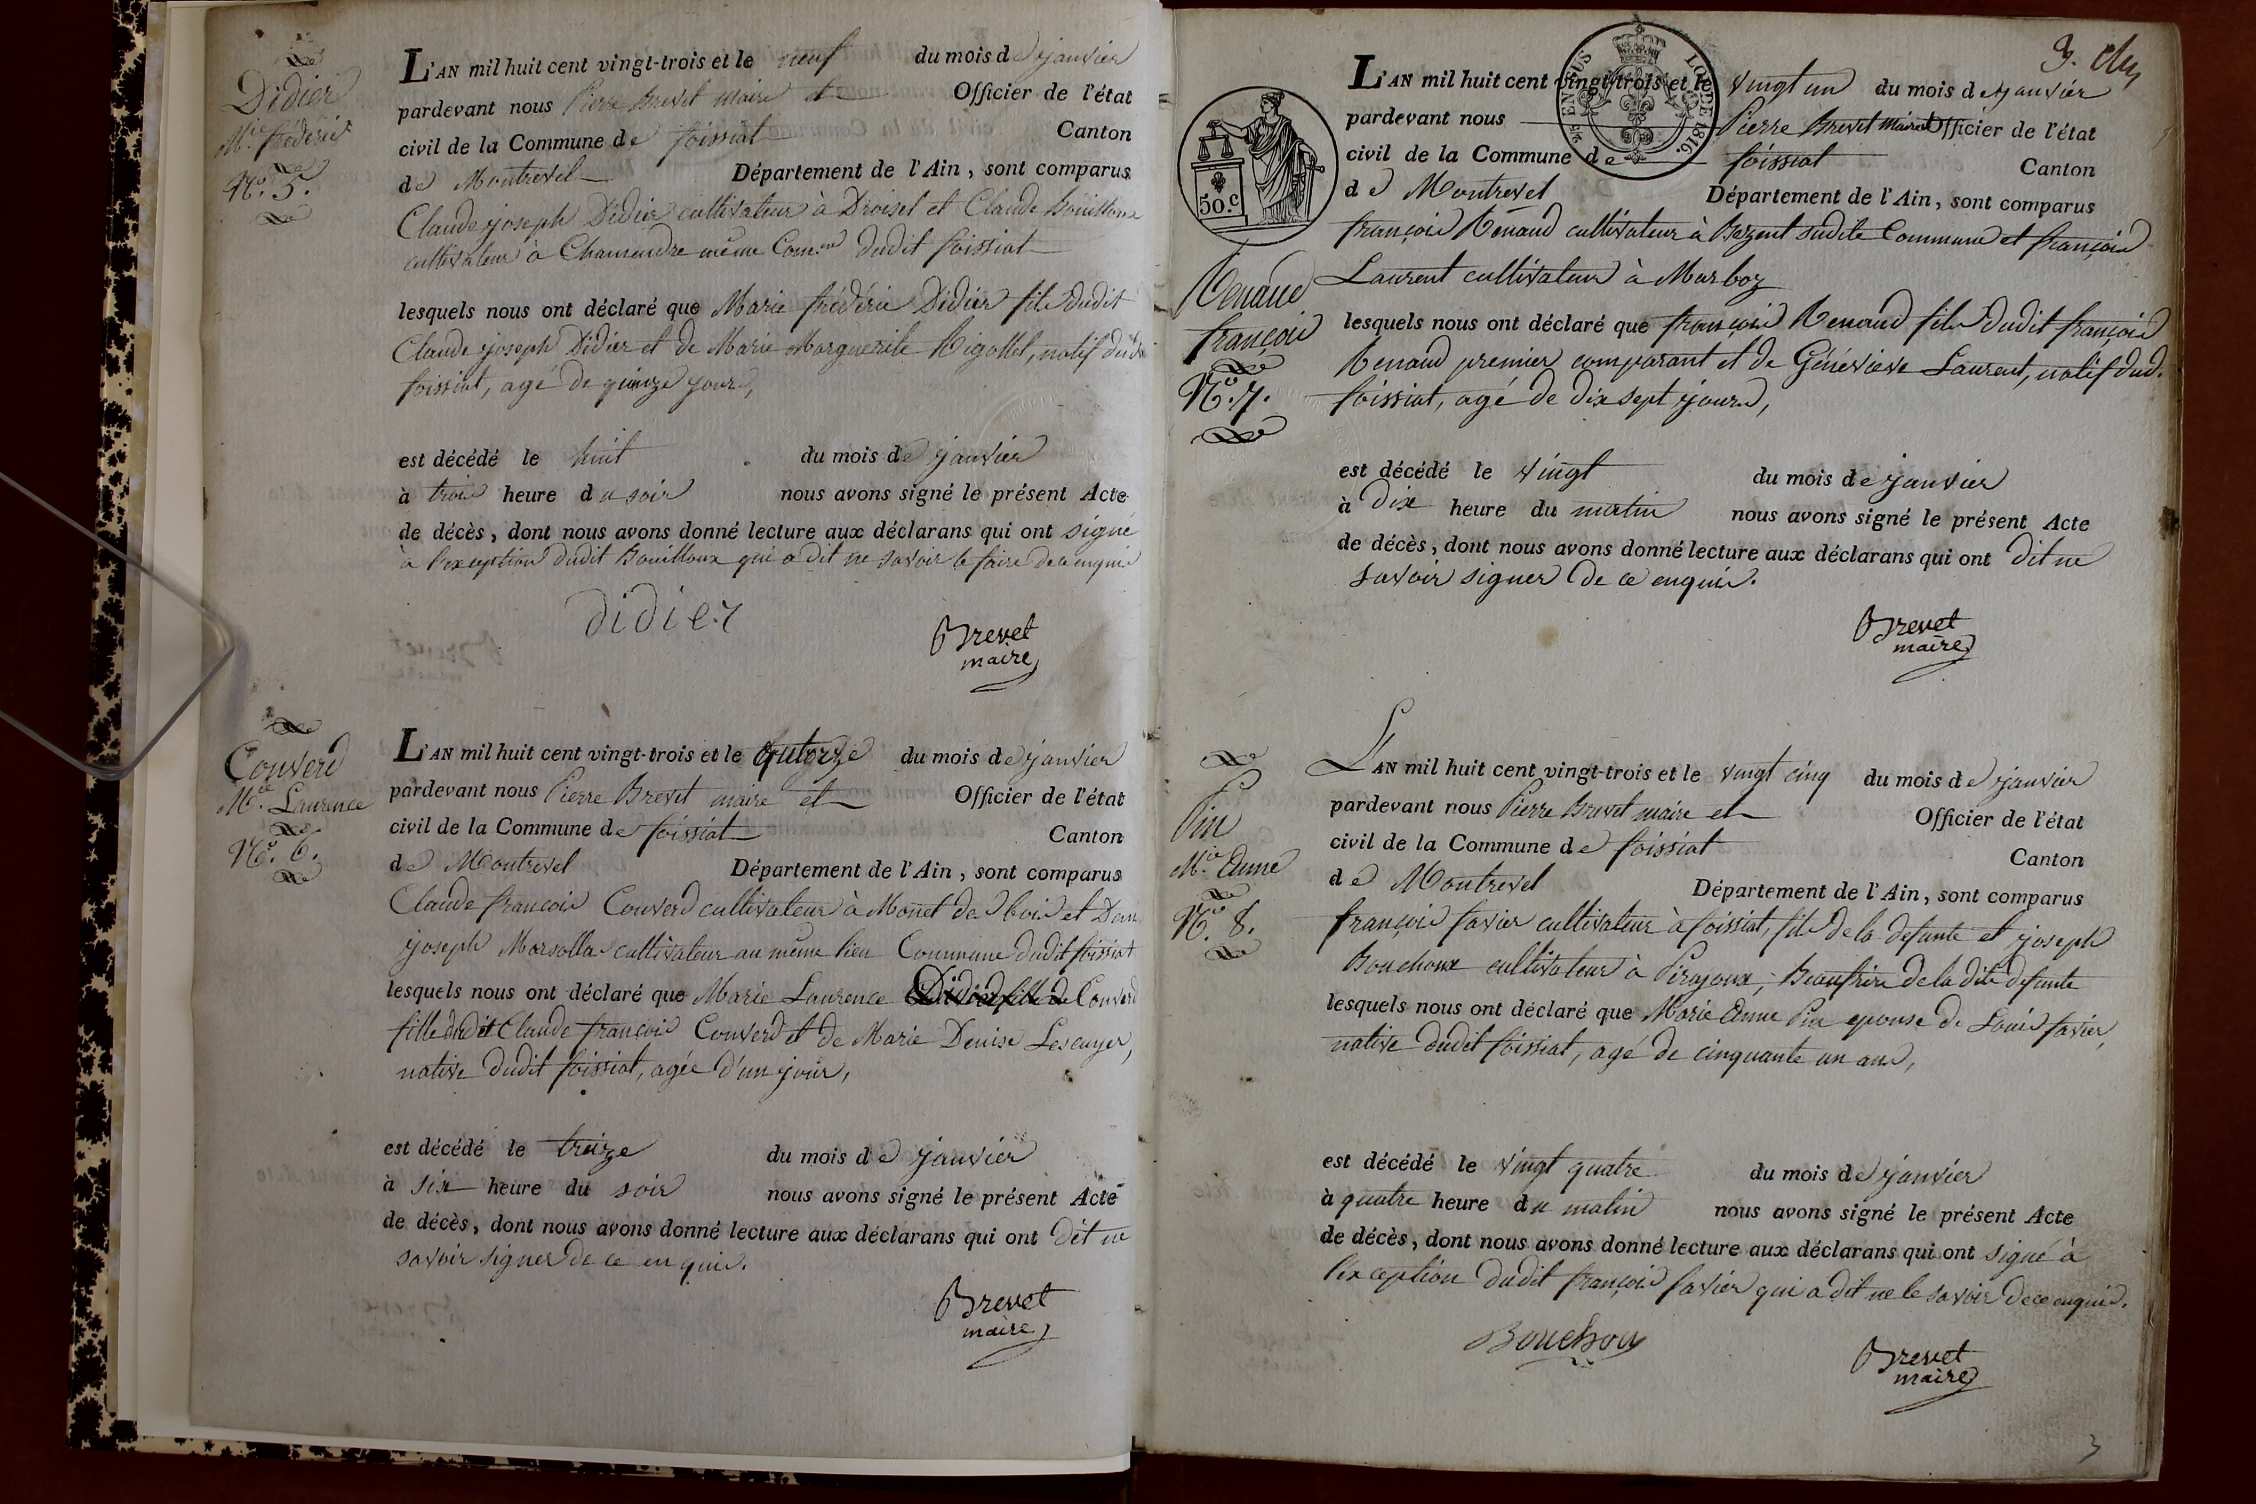 Didier
Mie frédéric
No. 5.
L'AN mil huit cent vingt-trois et le neuf du mois de janvier
pardevant nous Pierre Brevet maire et Officier de l'état
civil de la Commune de foissiat Canton
de Montrevel Département de l'Ain, sont comparus
Claude joseph Didier cultivateur à Droiset et Claude Bouilloux
cultivateur à même Comne dudit foissiat
lesquels nous ont déclaré que Marie frédéric Didier fils dudit
Claude joseph Didier et de Marie Marguerite Rigollet, natif dudit
foissiat, agé de quinze jours,
est décédé le huit du mois de janvier
à trois heure du soir nous avons signé le présent Acte
de décès, dont nous avons donné lecture aux déclarans qui ont signé
à l'exception dudit Bouilloux qui a dit ne savoir le faire de ce enquis
didier
Brevet
maire
Converd
Mie Laurence
No. 6.
L'AN mil huit cent vingt-trois et le qutorze du mois de janvier
pardevant nous Pierre Brevet maire et Officier de l'état
civil de la Commune de foissiat Canton
de Montrevel Département de l'Ain, sont comparus
Claude françois Converd cultivateur à Monet de Bois et Denis
joseph Marsolla cultivateur au même lieu Commune dudit foissiat
lesquels nous ont déclaré que Marie Laurence Converd
fille dudit Claude françois Converd et de Marie Denise Lescuyer,
native dudit foissiat, agée d'un jour,
est décédé le treize du mois de janvier
à six heure du soir nous avons signé le présent Acte
de décès, dont nous avons donné lecture aux déclarans qui ont dit ne
savoir signer de ce enquis.
Brevet
maire
3.
50.C
LOI DE 1816.
Renaud
françois
No. 7.
L'AN mil huit cent vingt-trois et le vingt un du mois de janvier
pardevant nous Pierre Brevet maire et Officier de l'état
civil de la Commune de foissiat Canton
de Montrevel Département de l'Ain, sont comparus
françois Renaud cultivateur à Bezent sudite Commune et françois
Laurent cultivateur à Marboz
lesquels nous ont déclaré que françois Renaud fils dudit françois
Renaud premier comparant et de Génévieve Laurent, natif dud.
foissiat, agé de dix sept jours,
est décédé le vingt du mois de janvier
à dix heure du matin nous avons signé le présent Acte
de décès, dont nous avons donné lecture aux déclarans qui ont dit ne
savoir signer de ce enquis.
Brevet
maire
Pin
Mie Anne
No. 8.
L'AN mil huit cent vingt-trois et le vingt cinq du mois de janvier
pardevant nous Pierre Brevet maire et Officier de l'état
civil de la Commune de foissiat Canton
de Montrevel Département de l'Ain, sont comparus
françois favier cultivateur à foissiat, fils de la defunte et joseph
Bouchoux cultivateur à Pirajoux, Beaufrère de la dite defunte
lesquels nous ont déclaré que Marie Anne Pin epouse de Louis favier,
native dudit foissiat, agé de cinquante un ans,
est décédé le vingt quatre du mois de janvier
à quatre heure du matin nous avons signé le présent Acte
de décès, dont nous avons donné lecture aux déclarans qui ont signé à
l'exception dudit françois favier qui a dit ne le savoir de ce enquis.
Bouchou
Brevet
maire
3